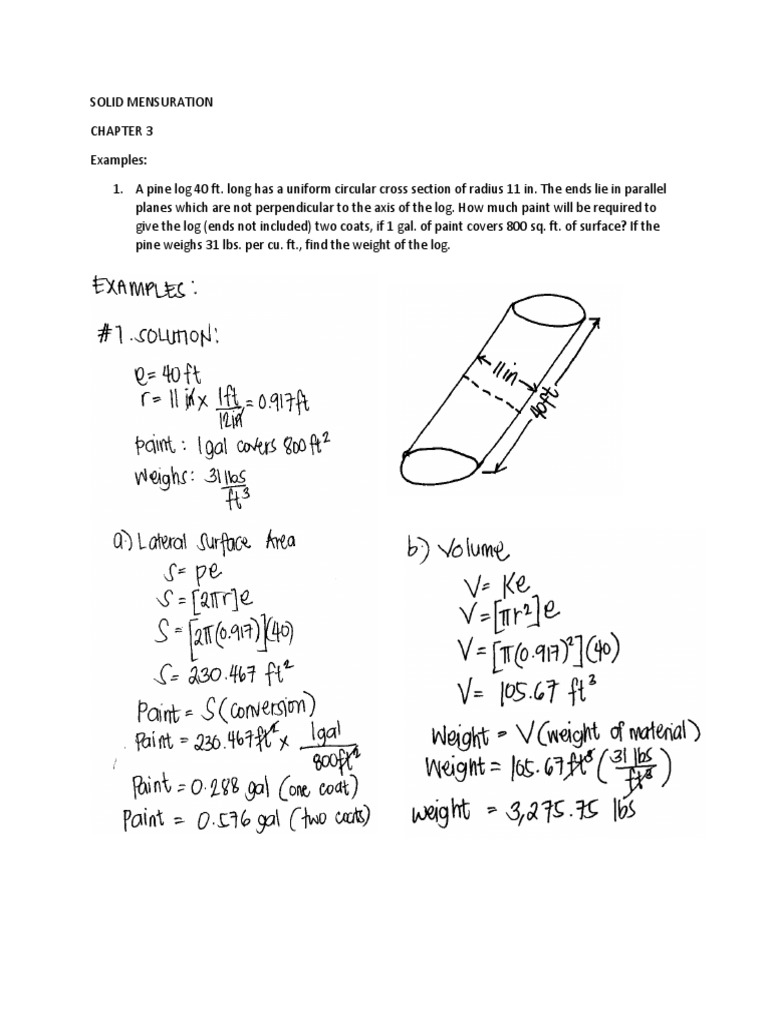 SOLID MENSURATION
CHAPTER 3
Examples:
1. A pine log 40 ft. long has a uniform circular cross section of radius 11 in. The ends lie in parallel
planes which are not perpendicular to the axis of the log. How much paint will be required to
give the log (ends not included) two coats, if 1 gal. of paint covers 800 sq. ft. of surface? If the
pine weighs 31 lbs. per cu. ft., find the weight of the log.
EXAMPLES:
#1. SOLUTION:
e = 40 ft
r = 11 in x 1ft/12in = 0.917 ft
paint: 1 gal covers 800 ft²
weighs: 31 lbs/ft³
11 in
40 ft
a.) Lateral Surface Area
S = pe
S = [2πr]e
S = [2π(0.917)](40)
S = 230.467 ft²
Paint = S (conversion)
Paint = 230.467 ft² x 1gal/800ft²
Paint = 0.288 gal (one coat)
Paint = 0.576 gal (two coats)
b.) Volume
V = Ke
V = [πr²]e
V = [π(0.917)²](40)
V = 105.67 ft³
Weight = V (weight of material)
Weight = 105.67 ft³ (31 lbs/ft³)
weight = 3,275.75 lbs